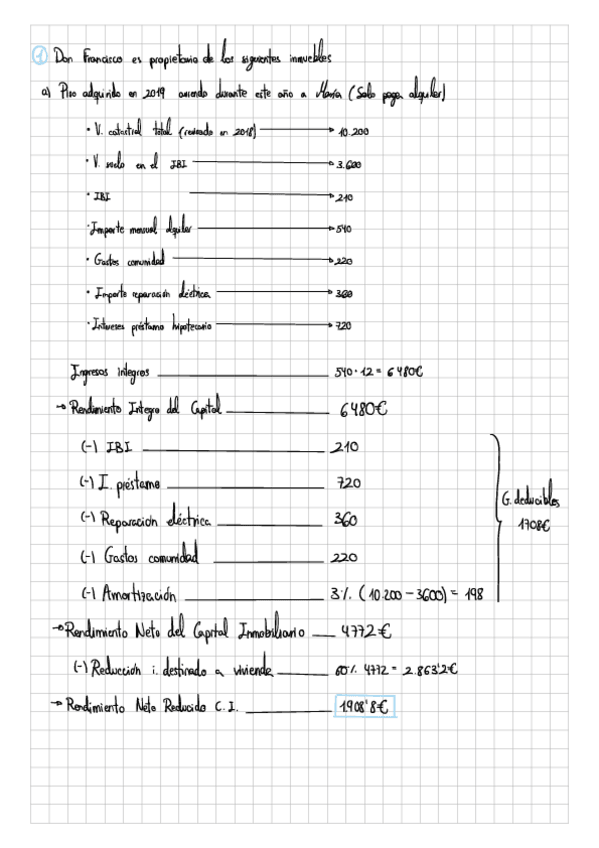 1 Don Francisco es propietario de los siguientes inmuebles
a) Piso adquirido en 2019 arrendo durante este año a María (Solo paga alquiler)
· V. catastral total (revisado en 2018) → 10.200
· V. suelo en el IBI → 3.600
· IBI → 210
· Importe mensual alquiler → 540
· Gastos comunidad → 220
· Importe reparación eléctrica → 360
· Intereses préstamo hipotecario → 720
Ingresos integros 540·12 = 6480€
→ Rendimiento Integro del Capital 6480€
(-) IBI 210
(-) I. préstamo 720
(-) Reparación eléctrica 360
(-) Gastos comunidad 220
(-) Amortización 3% (10.200 - 3600) = 198
G. deducibles
1708€
→ Rendimiento Neto del Capital Inmobiliario 4772€
(-) Reducción i. destinado a vivienda 60% 4772 = 2.863'2€
→ Rendimiento Neto Reducido C.I. 1.908'8€